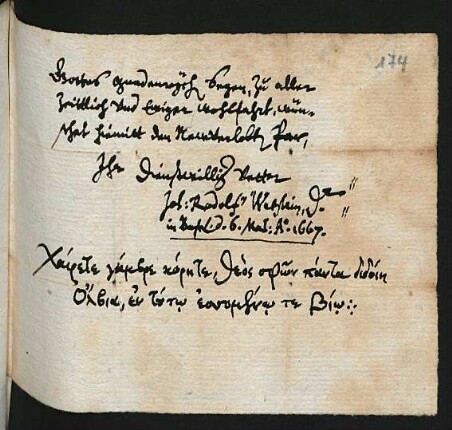 174
Gottes gnadenreich Segen, zu aller
zeittlich Und Ewiger wohlfahrt, wün-
schet hiemitt den Neuverlobten Par,
Ihr Dienstwilliger Vetter
Joh: Rodolf Wetstein, D.
in Basel d. 6. Mai: Aº. 1667.
Χαίρετε γάμβρε κόρη τε, θεὸς σφῶν πάντα διδοίη
Ὄλβια, ἐν τούτῳ ἐσσομένῳ τε βίῳ: